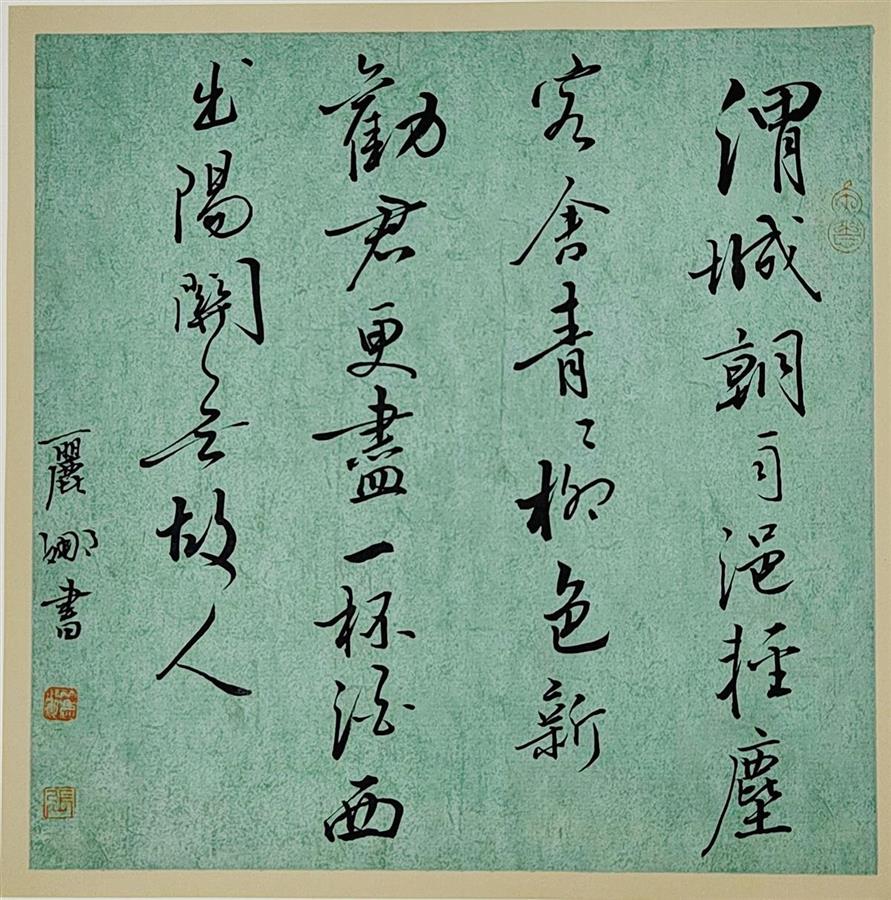 渭城朝雨浥輕塵
客舍青〻柳色新
勸君更盡一杯酒西
出陽關無故人
麗娜書